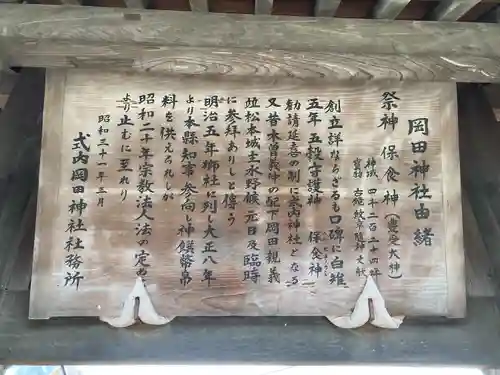 岡田神社由緒
祭神 保食神 (豊受大神)
神域 四千二百二十四坪
創立詳ならざるも口碑に白雉
五年五穀守護神 保食神
勧請延喜の制に式内神社となる
又昔木曽義仲の配下岡田親義
並松本城主水野候元日及臨時
に参拝ありしと傳う
明治五年郷社に列し大正八年
より本縣知事参向し神饌幣帛
料を供えられしが
昭和二十年宗教法人法の定め
より止むに至れり
昭和三十一年三月
式内岡田神社社務所